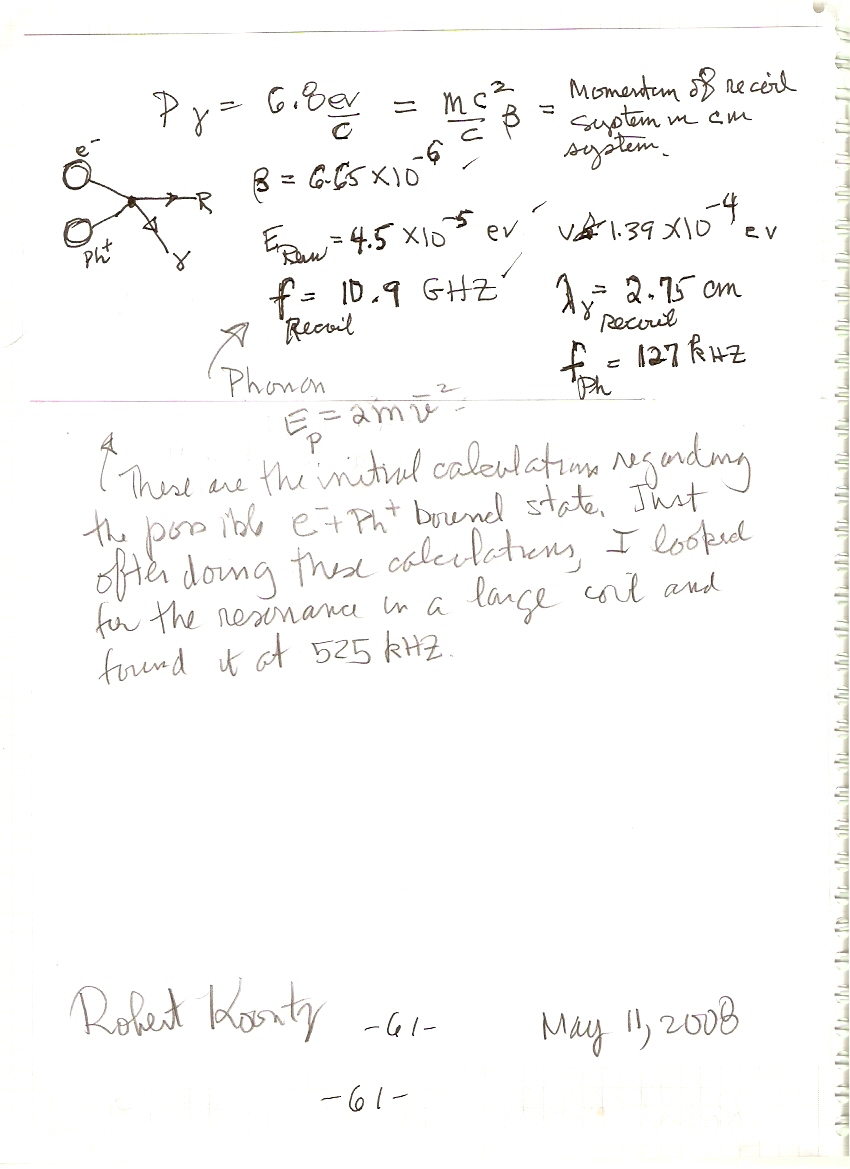 Pγ = 6.8 ev/c = mc²/c β = Momentum of recoil
system in cm
system.
e⁻
β = 6.65 X10⁻⁶ ✓
R
Ph⁺
γ
E = 4.5 X10⁻⁵ ev ✓ 1.39 X10⁻⁴ eV
f Recoil = 10.9 GHZ ✓ λγ recoil = 2.75 cm
f Ph = 127 kHZ
Phonon
Ep = 2mv̄²
These are the initial calculations regarding
the possible e⁻+Ph⁺ bound state. Just
after doing these calculations, I looked
for the resonance in a large coil and
found it at 525 kHZ.
Robert Koontz -61- May 11, 2008
-61-